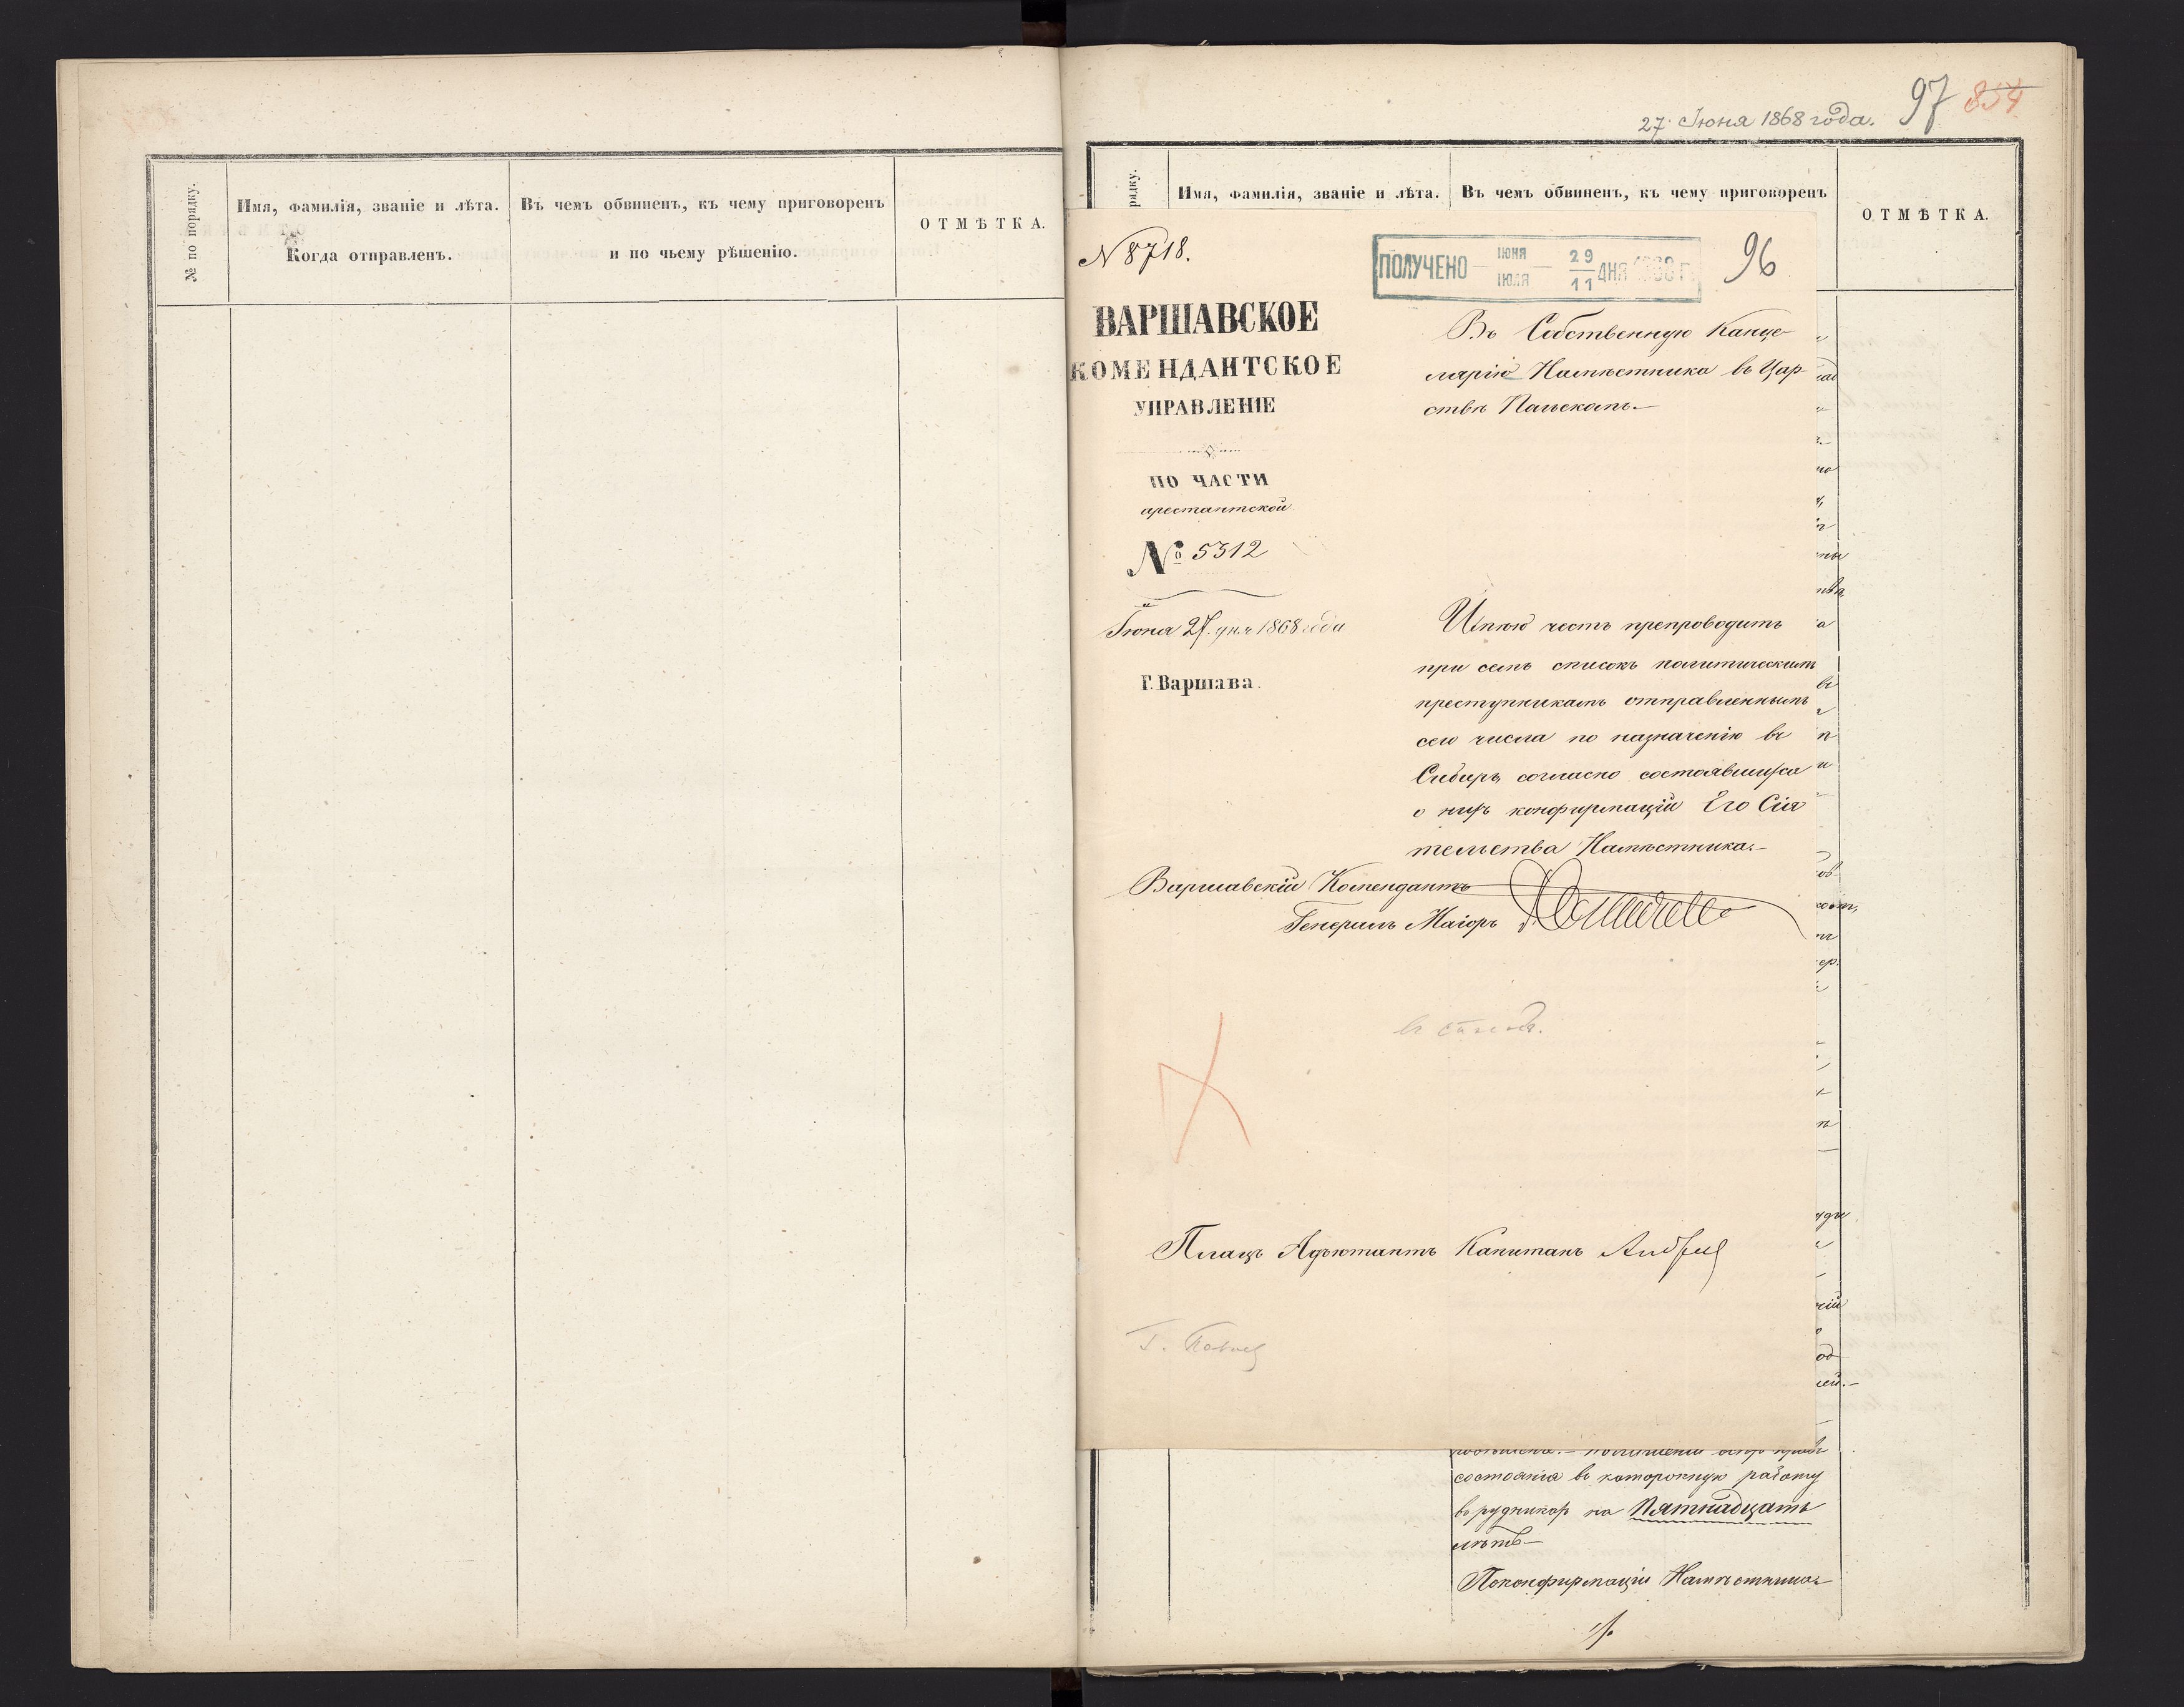 № по порядку.
Имя, фамилія, званіе и лѣта.
Когда отправленъ.
Въ чемъ обвиненъ, къ чему приговоренъ
и по чьему рѣшенію.
ОТМѢТКА.
97 854
27 Іюня 1868 года.
рядку.
Имя, фамилія, званіе и лѣта.
Въ чемъ обвиненъ, къ чему приговоренъ
ОТМѢТКА.
N 8718.
ПОЛУЧЕНО ІЮНЯ 29 ІЮЛЯ 11 ДНЯ 1868 Г.
96
ВАРШАВСКОЕ
КОМЕНДАНТСКОЕ
УПРАВЛЕНІЕ
ПО ЧАСТИ
арестантской
№ 5312
Іюня 27 дня 1868 года
Г. Варшава.
Въ Собственную Канце-
лярію Намѣстника въ Цар-
ствѣ Польскомъ.—
Имѣю честь препроводить
при семъ списокъ политическимъ
преступникамъ отправленнымъ
сего числа по назначенію въ
Сибирь согласно состоявшихся
о нихъ конфирмаціи Его Сія
тельства Намѣстника.—
Варшавскій Комендантъ
Генералъ Маіоръ
Плацъ Адъютантъ Капитанъ
состоянія въ каторжную работу
въ рудникахъ на Пятнадцать
лѣтъ—
По конфирмаціи Намѣстника